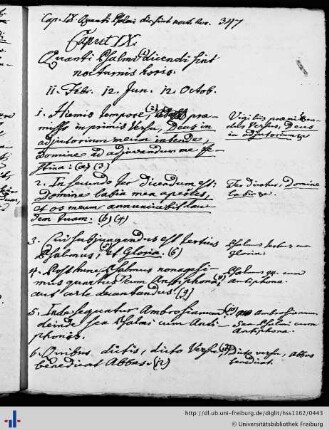 Cap. IX. Quanti Psalmi dic. sint noct. hor. 347
Caput IX.
Quanti Psalmi dicendi sint
nocturnis horis.
11. Febr. 12. Jun. 12. Octob.
1. Hiemis tempore, (2) præ-
misso in primis Versu, Deus in
adjutorium meum intende
Domine ad adjuvandum me fe-
stina: (2) (3)
Versus, Deus
in adjutorium
2. In secundo ter dicendum est:
Domine labia mea aperies,
et os meum annunciabit lau-
dem tuam. (6) (4)
Ter dicetur, Domine
labia
3. Cui subjungendus est tertius
Psalmus, et Gloria. (6)
Psalmus tertius cum
gloria
4. Post hunc Psalmus nonagesi-
mus quartus cum Antiphona
aut certe decantandus. (3)
Psalmus 94. cum
antiphona
5. Inde sequatur Ambrosianum
deinde sex Psalmi cum Anti-
phonis.
Ambrosianum
sex Psalmi cum
Antiphonis
6. Quibus dictis, dicto Versu
benedicat Abbas. (2)
dicto versu, abbas
benedicat.
http://dl.ub.uni-freiburg.de/diglit/hs1162/0443
© Universitätsbibliothek Freiburg